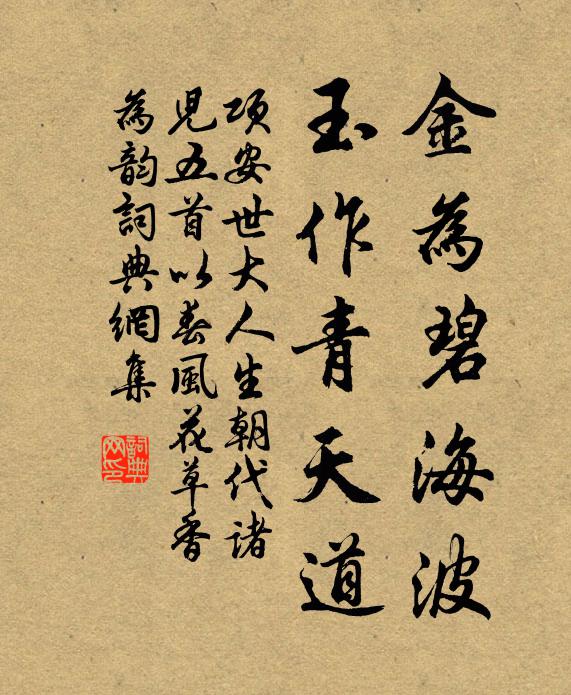 金為碧海波
玉作青天道
項安世大人生朝代諸
兒五首以春風花草香
為韵詞典網集
詞典
网印